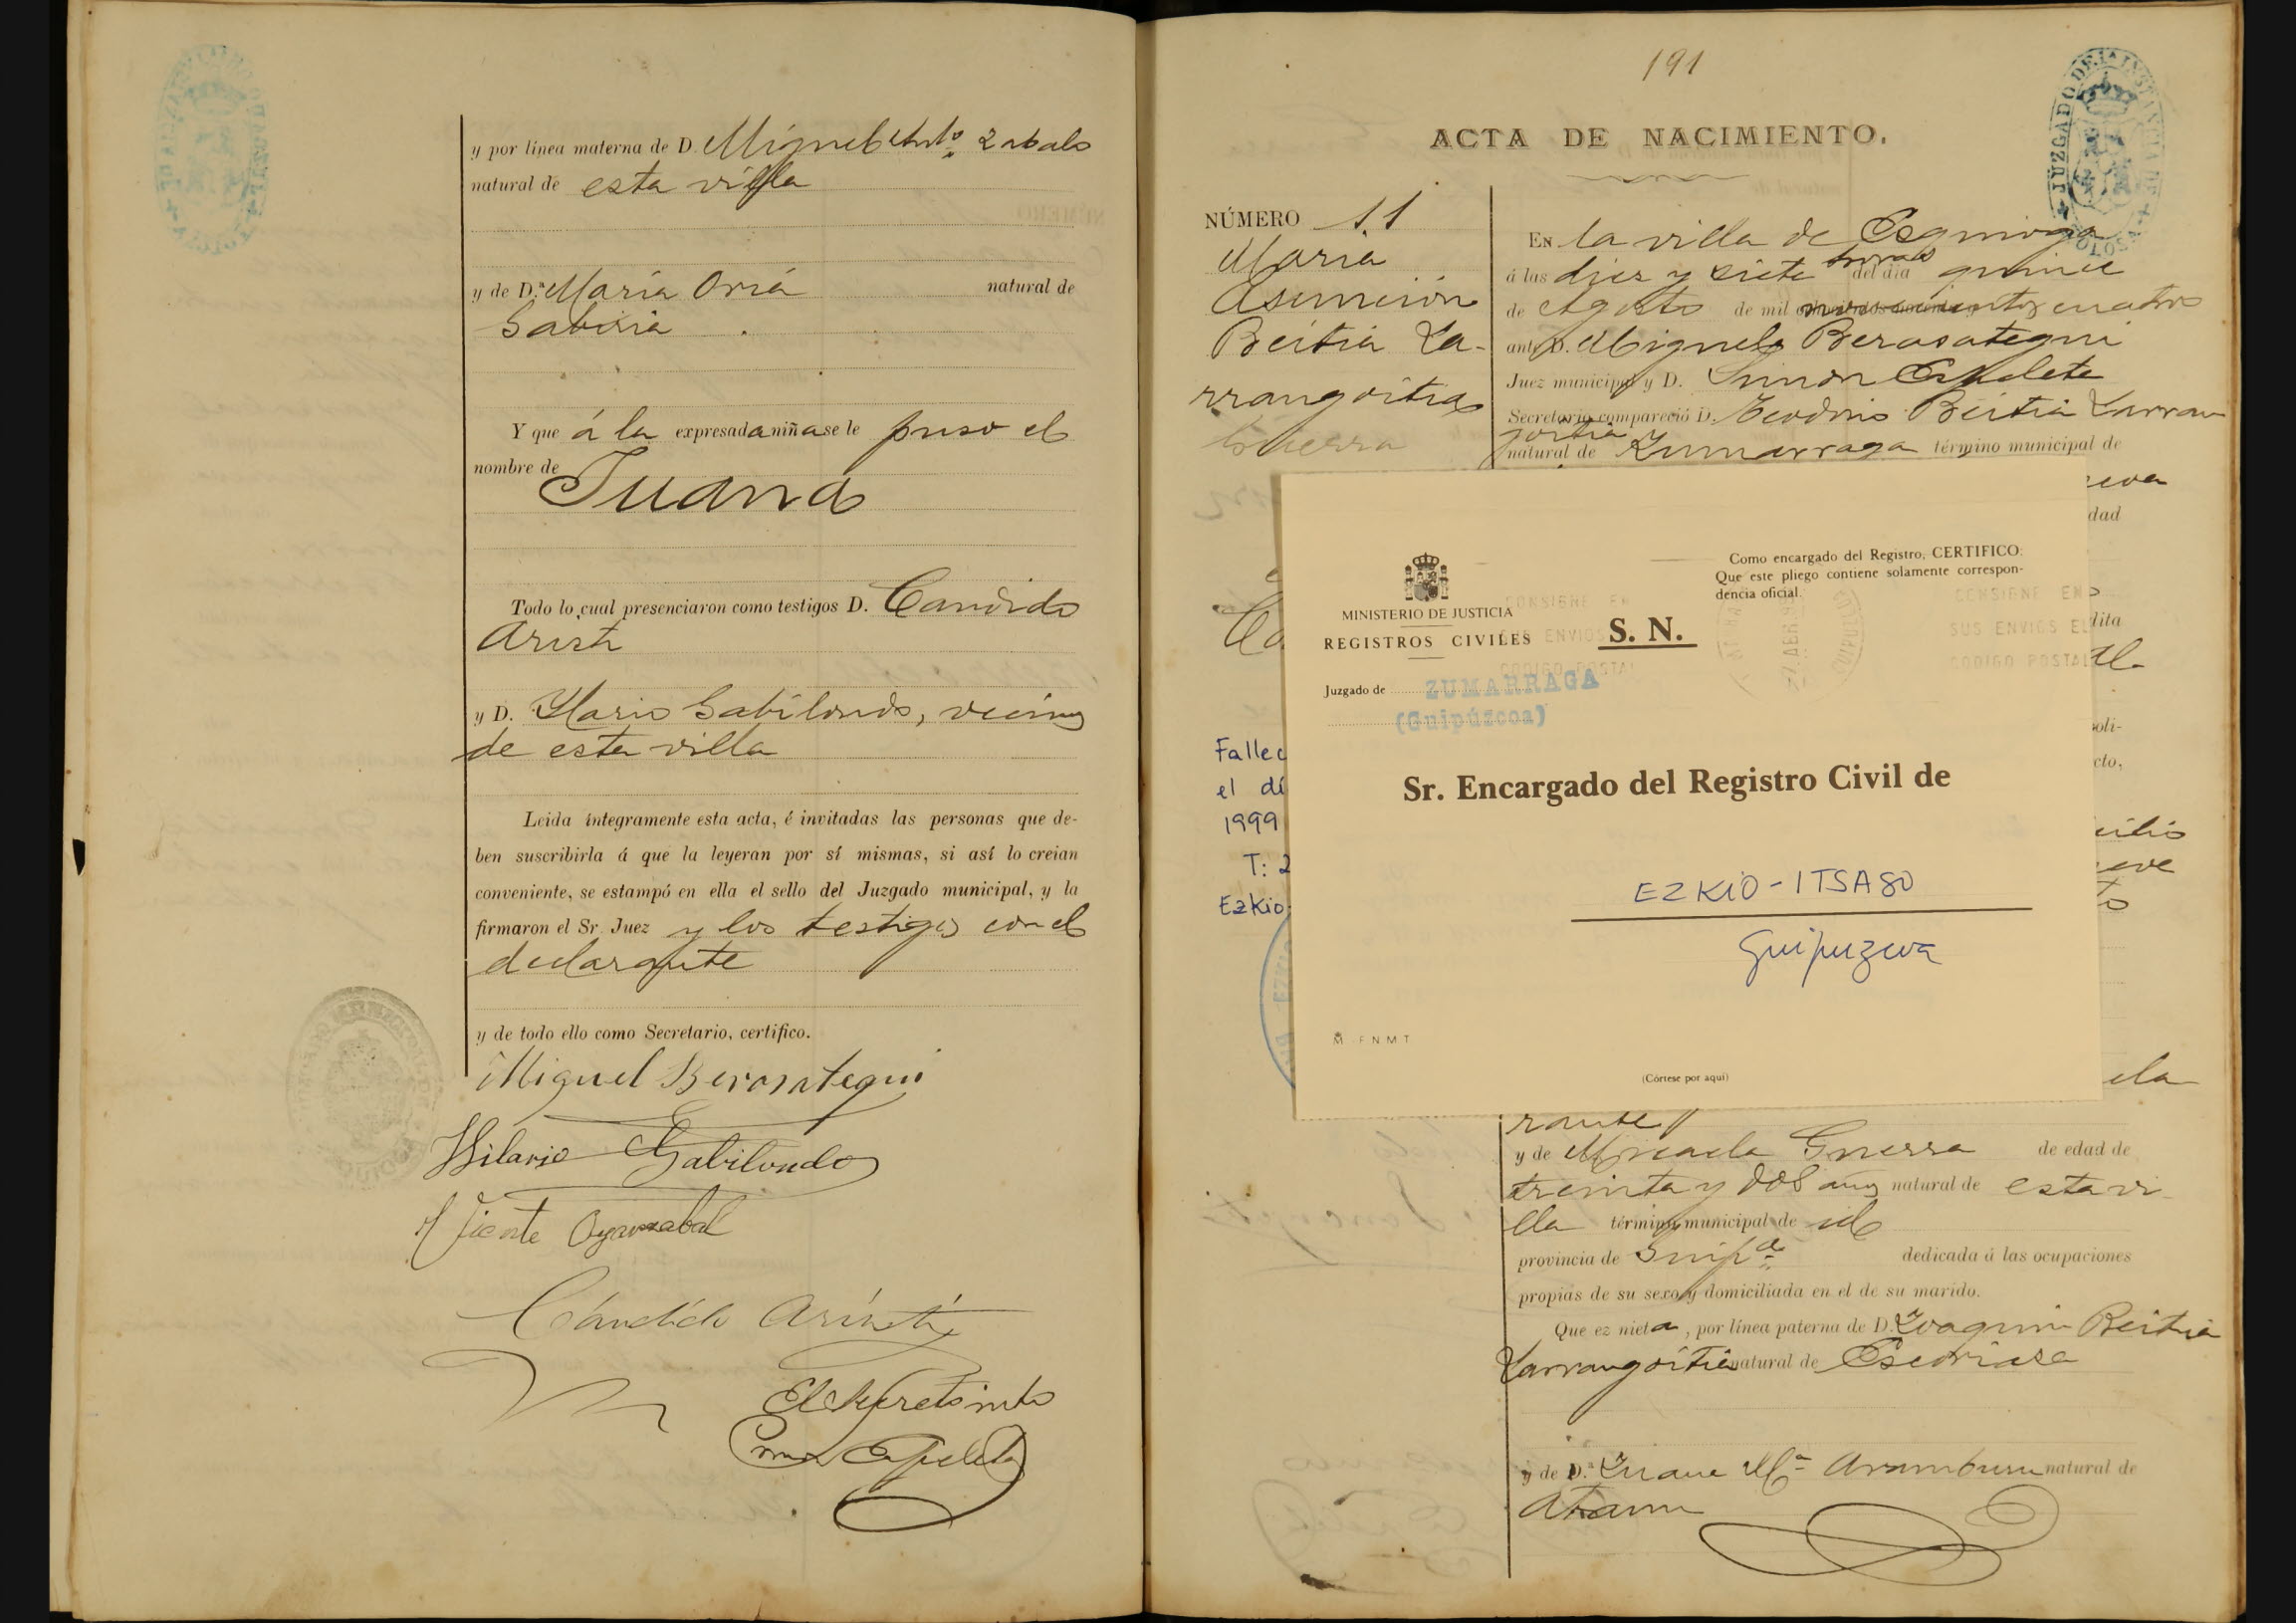 y por línea materna de D. Miguel Anto. Zabalo
natural de esta villa
y de D.ª María Oriá natural de
Gabiria
Y que á la expresada niña se le puso el
nombre de
Juana
Todo lo cual presenciaron como testigos D. Candido
Aristi
y D. Ylario Gabilondo, vecinos
de esta villa
Leida íntegramente esta acta, é invitadas las personas que de-
ben suscribirla á que la leyeran por sí mismas, si así lo creian
conveniente, se estampó en ella el sello del Juzgado municipal, y la
firmaron el Sr. Juez y los testigos con el
declarante
y de todo ello como Secretario, certifico.
Miguel Berasategui
Hilario Gabilondo
Vicente Oyarzabal
Cándido Aristi
El Secretario
Simon Espeleta
191
JUZGADO DE 1.ª INSTANCIA DE TOLOSA
ACTA DE NACIMIENTO.
NÚMERO 11
Maria
Asunción
Beitia La-
rrangoitia
Guerra
EN la villa de Ezquioga
á las diez y siete horas del dia quince
de Agosto de mil novecientos cuatro
ante D. Miguel Berasategui
Juez municipal y D. Simon Espeleta
Secretario compareció D. Teodoro Beitia Larran
goitia y
natural de Zumarraga término municipal de
dad
dita
soli-
cto,
cilio
Fallec
el dí
1999
T: 2
Ezkio
Como encargado del Registro, CERTIFICO:
Que este pliego contiene solamente correspon-
dencia oficial.
MINISTERIO DE JUSTICIA
REGISTROS CIVILES S. N.
CONSIGNE EN
SUS ENVIOS EL
CODIGO POSTAL
Juzgado de ZUMARRAGA
(Guipúzcoa)
Sr. Encargado del Registro Civil de
EZKIO-ITSASO
Guipuzcoa
F N M T
(Córtese por aquí)
ela
rante
y de Micaela Guerra de edad de
treinta y dos años natural de esta vi
lla término municipal de id
provincia de Guip.ª dedicada á las ocupaciones
propias de su sexo y domiciliada en el de su marido.
Que es nieta, por línea paterna de D. Joaquin Beitia
Larrangoitia natural de Escoriaza
y de D.ª Juana M.ª Aramburu natural de
Ataun